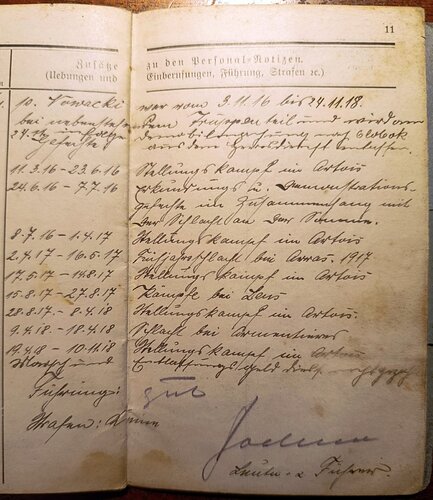 11
Zusätze zu den Personal-Notizen.
(Uebungen und Einberufungen, Führung, Strafen ec.)
p. Nowacki war vom 3.11.16 bis 24.11.18.
bei nebenstehendem Truppenteil und wird am
24.11. infolge Demobilmachung nach
aus dem Heeresdienst entlassen.
Gefechte
11.3.16 - 23.6.16 Stellungskampf im Artois
24.6.16 - 7.7.16 Erkundungs u. Demonstrations-
gefechte im Zusammenhang mit
der Schlacht an der Somme.
8.7.16 - 1.4.17 Stellungskampf im Artois
2.4.17 - 16.5.17 Frühjahrsschlacht bei Arras. 1917.
17.5.17 - 14.8.17 Stellungskampf im Artois
15.8.17 - 27.8.17 Kämpfe bei Lens
28.8.17 - 8.4.18 Stellungskampf im Artois.
9.4.18 - 18.4.18 Schlacht bei Armentieres
19.4.18 - 10.11.18 Stellungskampf im Artois
Marsch und Entlassungsgeld
Führung: gut
Strafen: Keine
Leutn. u. Führer